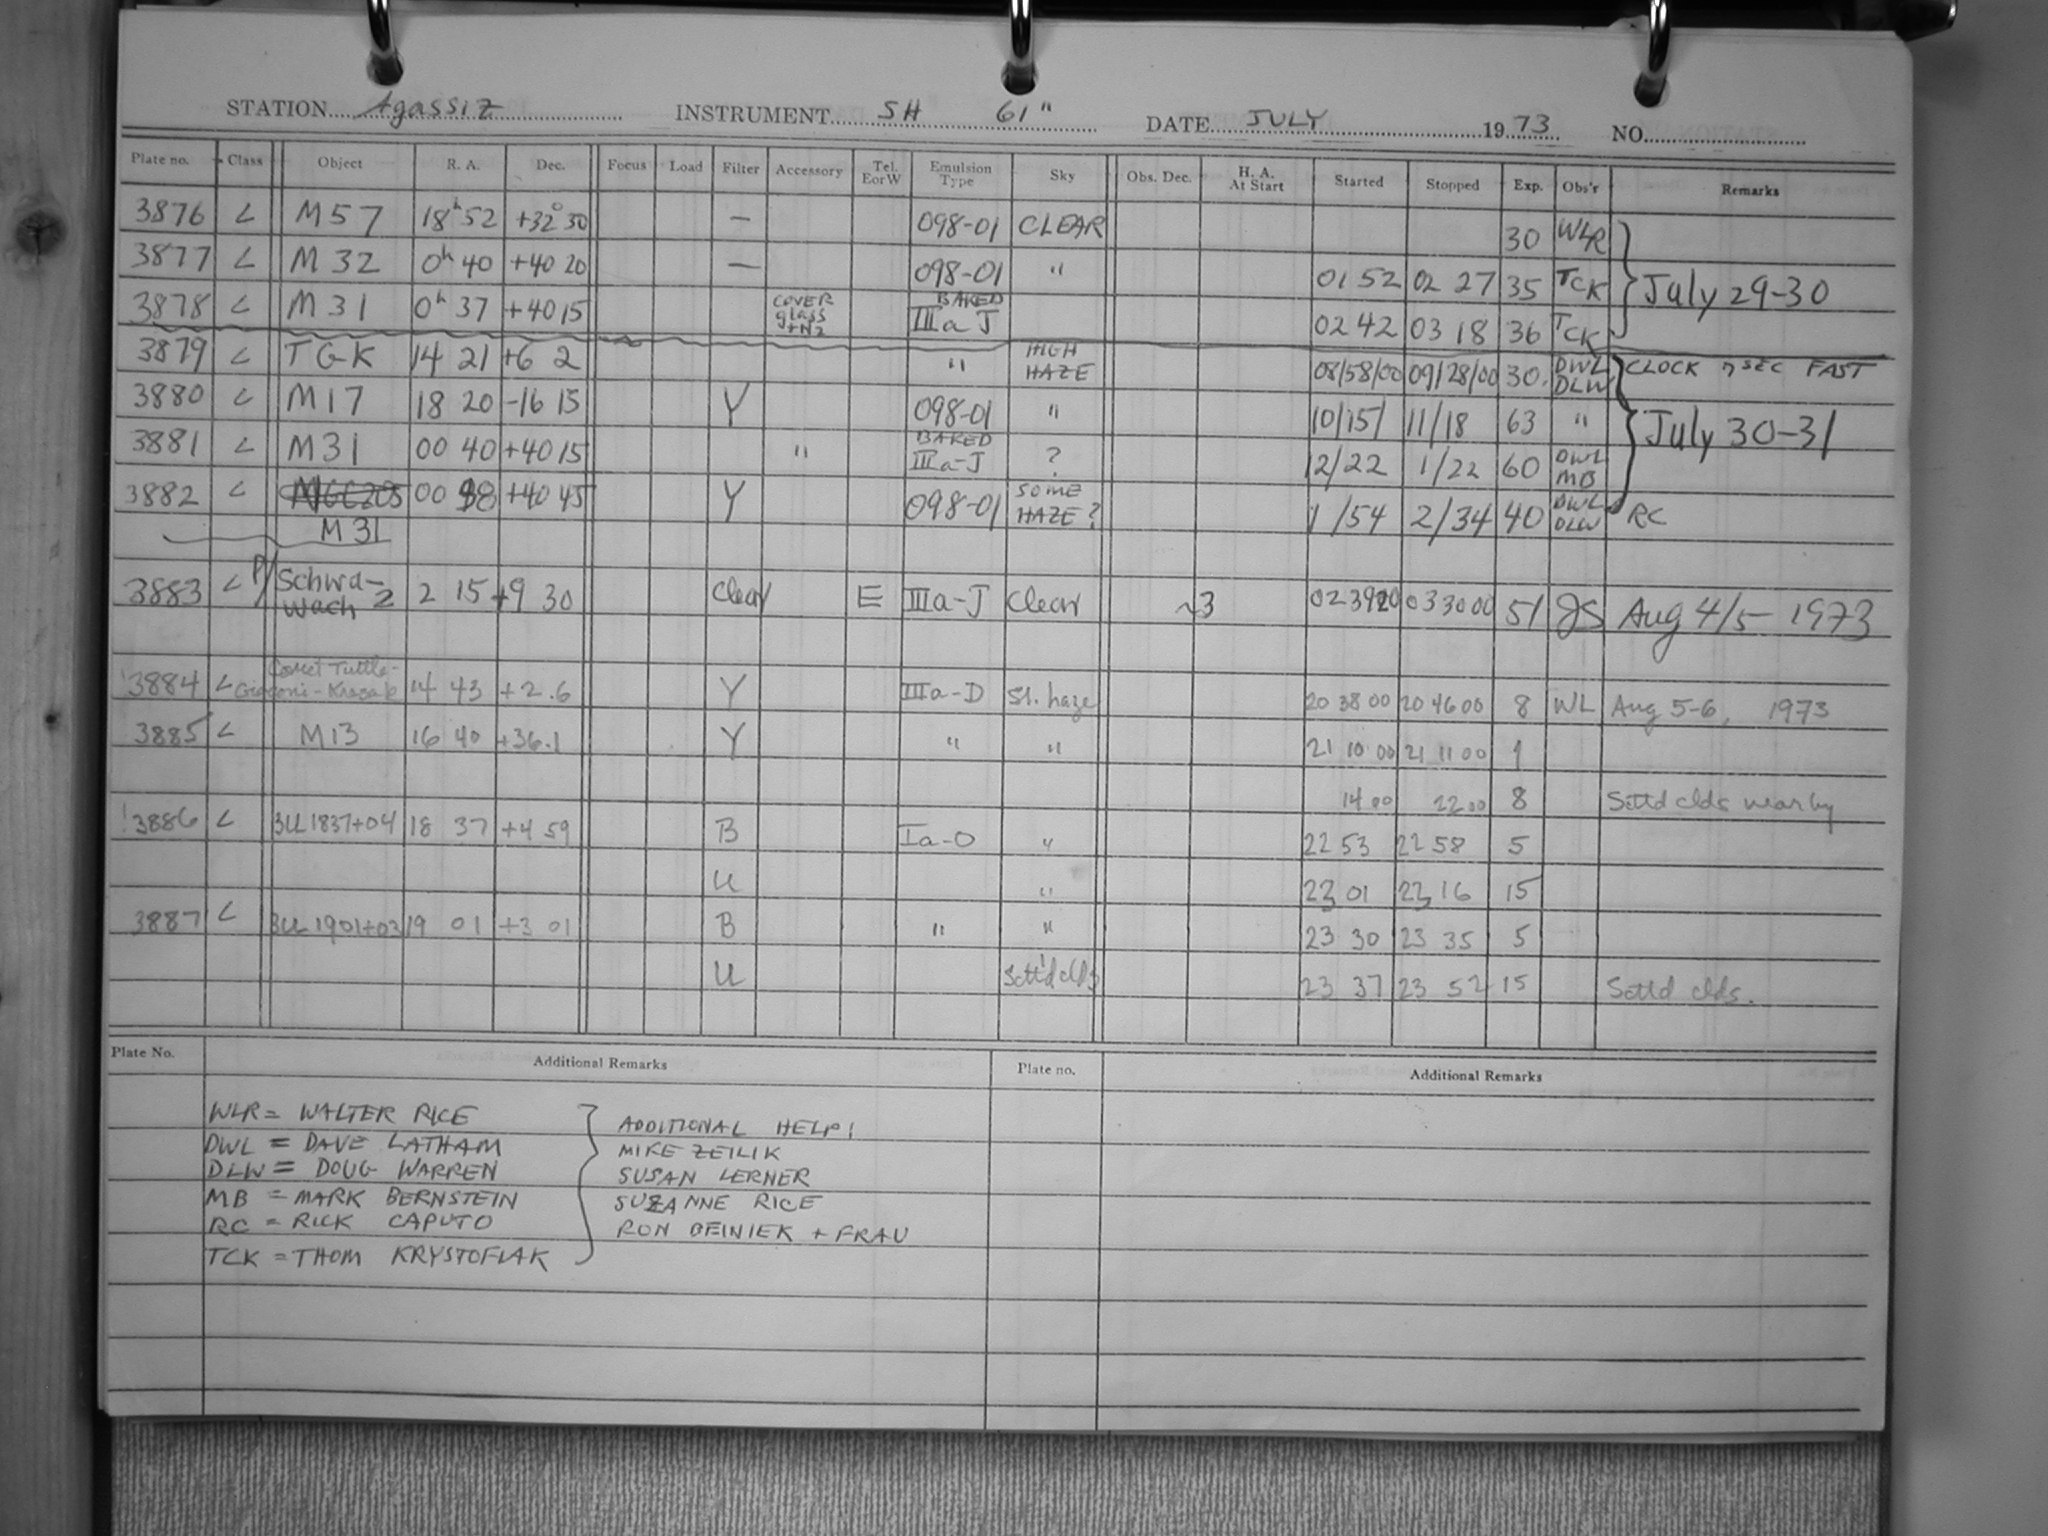 STATION Agassiz INSTRUMENT SH 61" DATE JULY 1973 NO.
Plate no. Class Object R. A. Dec. Focus Load Filter Accessory Tel. E or W Emulsion Type Sky Obs. Dec. H. A. At Start Started Stopped Exp. Obs'r Remarks
3876 L M57 18h 52 +32° 50 — 098-01 CLEAR 30 WLR
3877 L M32 0h 40 +40 20 — 098-01 " 01 52 02 27 35 TCK July 29-30
3878 L M31 0h 37 +40 15 COVER glass +N2 BAKED IIIa J 02 42 03 18 36 TCK
3879 L TGK 14 21 +6 2 " HIGH HAZE 08/58/00 09/28/00 30. DWL DLW CLOCK 7 SEC FAST
3880 L M17 18 20 -16 15 Y 098-01 " 10/15/ 11/18 63 " July 30-31
3881 L M31 00 40 +40 15 " BAKED IIIa-J ? 12/22 1/22 60 DWL MB
3882 L NGC205 00 38 +40 45 Y 098-01 SOME HAZE? 1/54 2/34 40 DWL DLW RC
M31
3883 L P/ Schwa- wach 2 2 15 +9 30 Clear E IIIa-J Clear ~3 02 39 20 03 30 00 51 JS Aug 4/5 - 1973
3884 L Comet Tuttle- Giacomi-Kresak 14 43 +2.6 Y IIIa-D Sl. haze 20 38 00 20 46 00 8 WL Aug 5-6, 1973
3885 L M13 16 40 +36.1 Y " " 21 10 00 21 11 00 1
14 00 22 00 8 Sctt'd clds nearby
3886 L 3U 1837+04 18 37 +4 59 B Ia-O " 22 53 22 58 5
U " 23 01 23 16 15
3887 L 3U 1901+03 19 01 +3 01 B " " 23 30 23 35 5
U Sctt'd clds 23 37 23 52 15 Sctt'd clds.
Plate No. Additional Remarks Plate no. Additional Remarks
WLR = WALTER RICE
DWL = DAVE LATHAM
DLW = DOUG WARREN
MB = MARK BERNSTEIN
RC = RICK CAPUTO
TCK = THOM KRYSTOFIAK
ADDITIONAL HELP!
MIKE ZEILIK
SUSAN LERNER
SUZANNE RICE
RON BEINIEK + FRAU